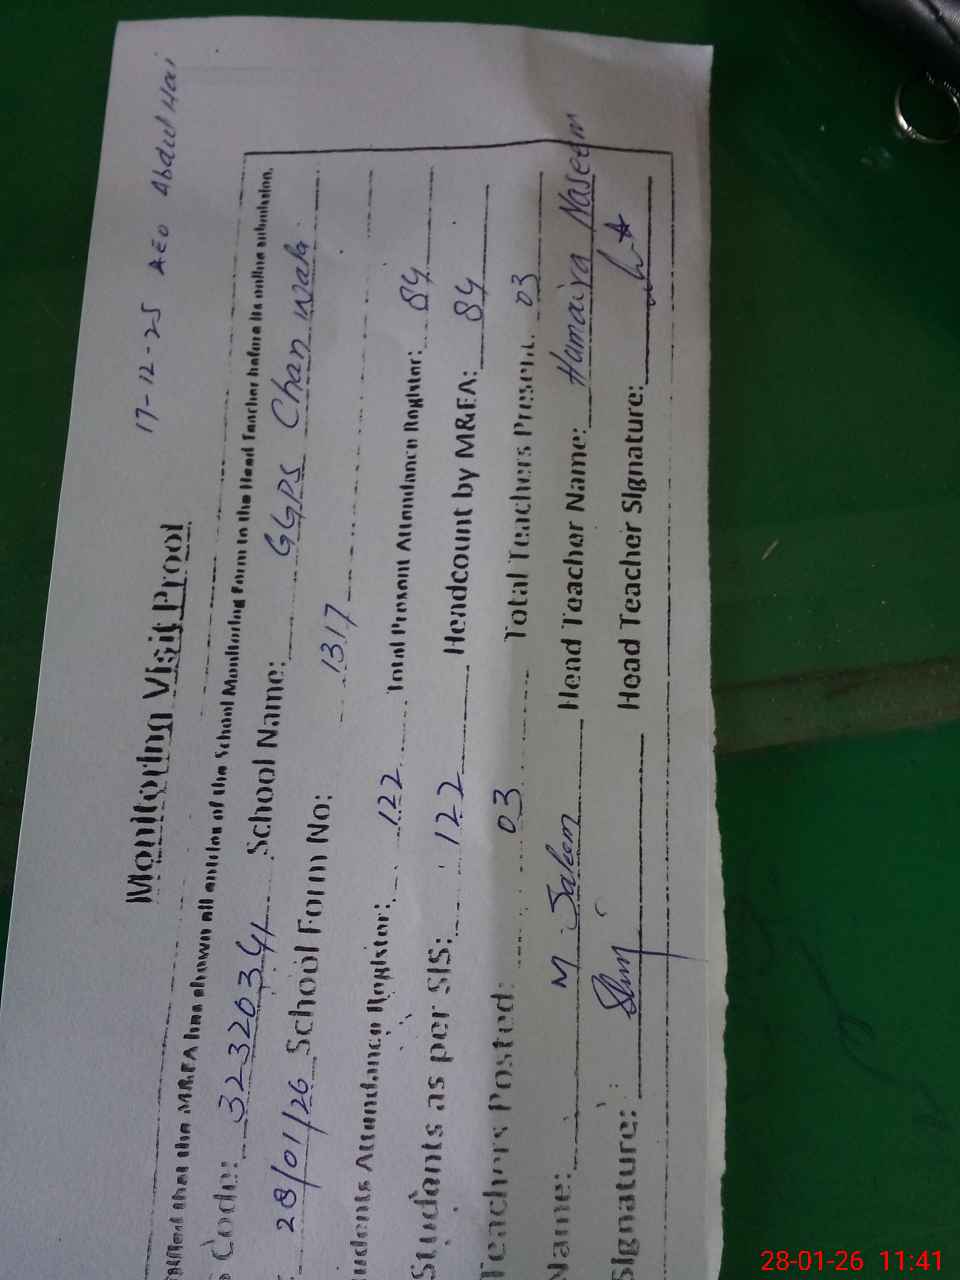 17-12-25 AEO Abdul Hai
Monitoring Visit Proof
that the M&EA has shown all entries of the School Monitoring Form to the Head Teacher before its online submission.
Code: 32320341 School Name: GGPS Chan wala
28/01/26 School Form No: 1317
Attendance Register: 122 Total Present Attendance Register: 84
Students as per SIS: 122 Headcount by M&EA: 84
Teachers Posted: 03 Total Teachers Present: 03
Name: M Saleem Head Teacher Name: Humaira Naseem
Signature: Head Teacher Signature:
28-01-26 11:41